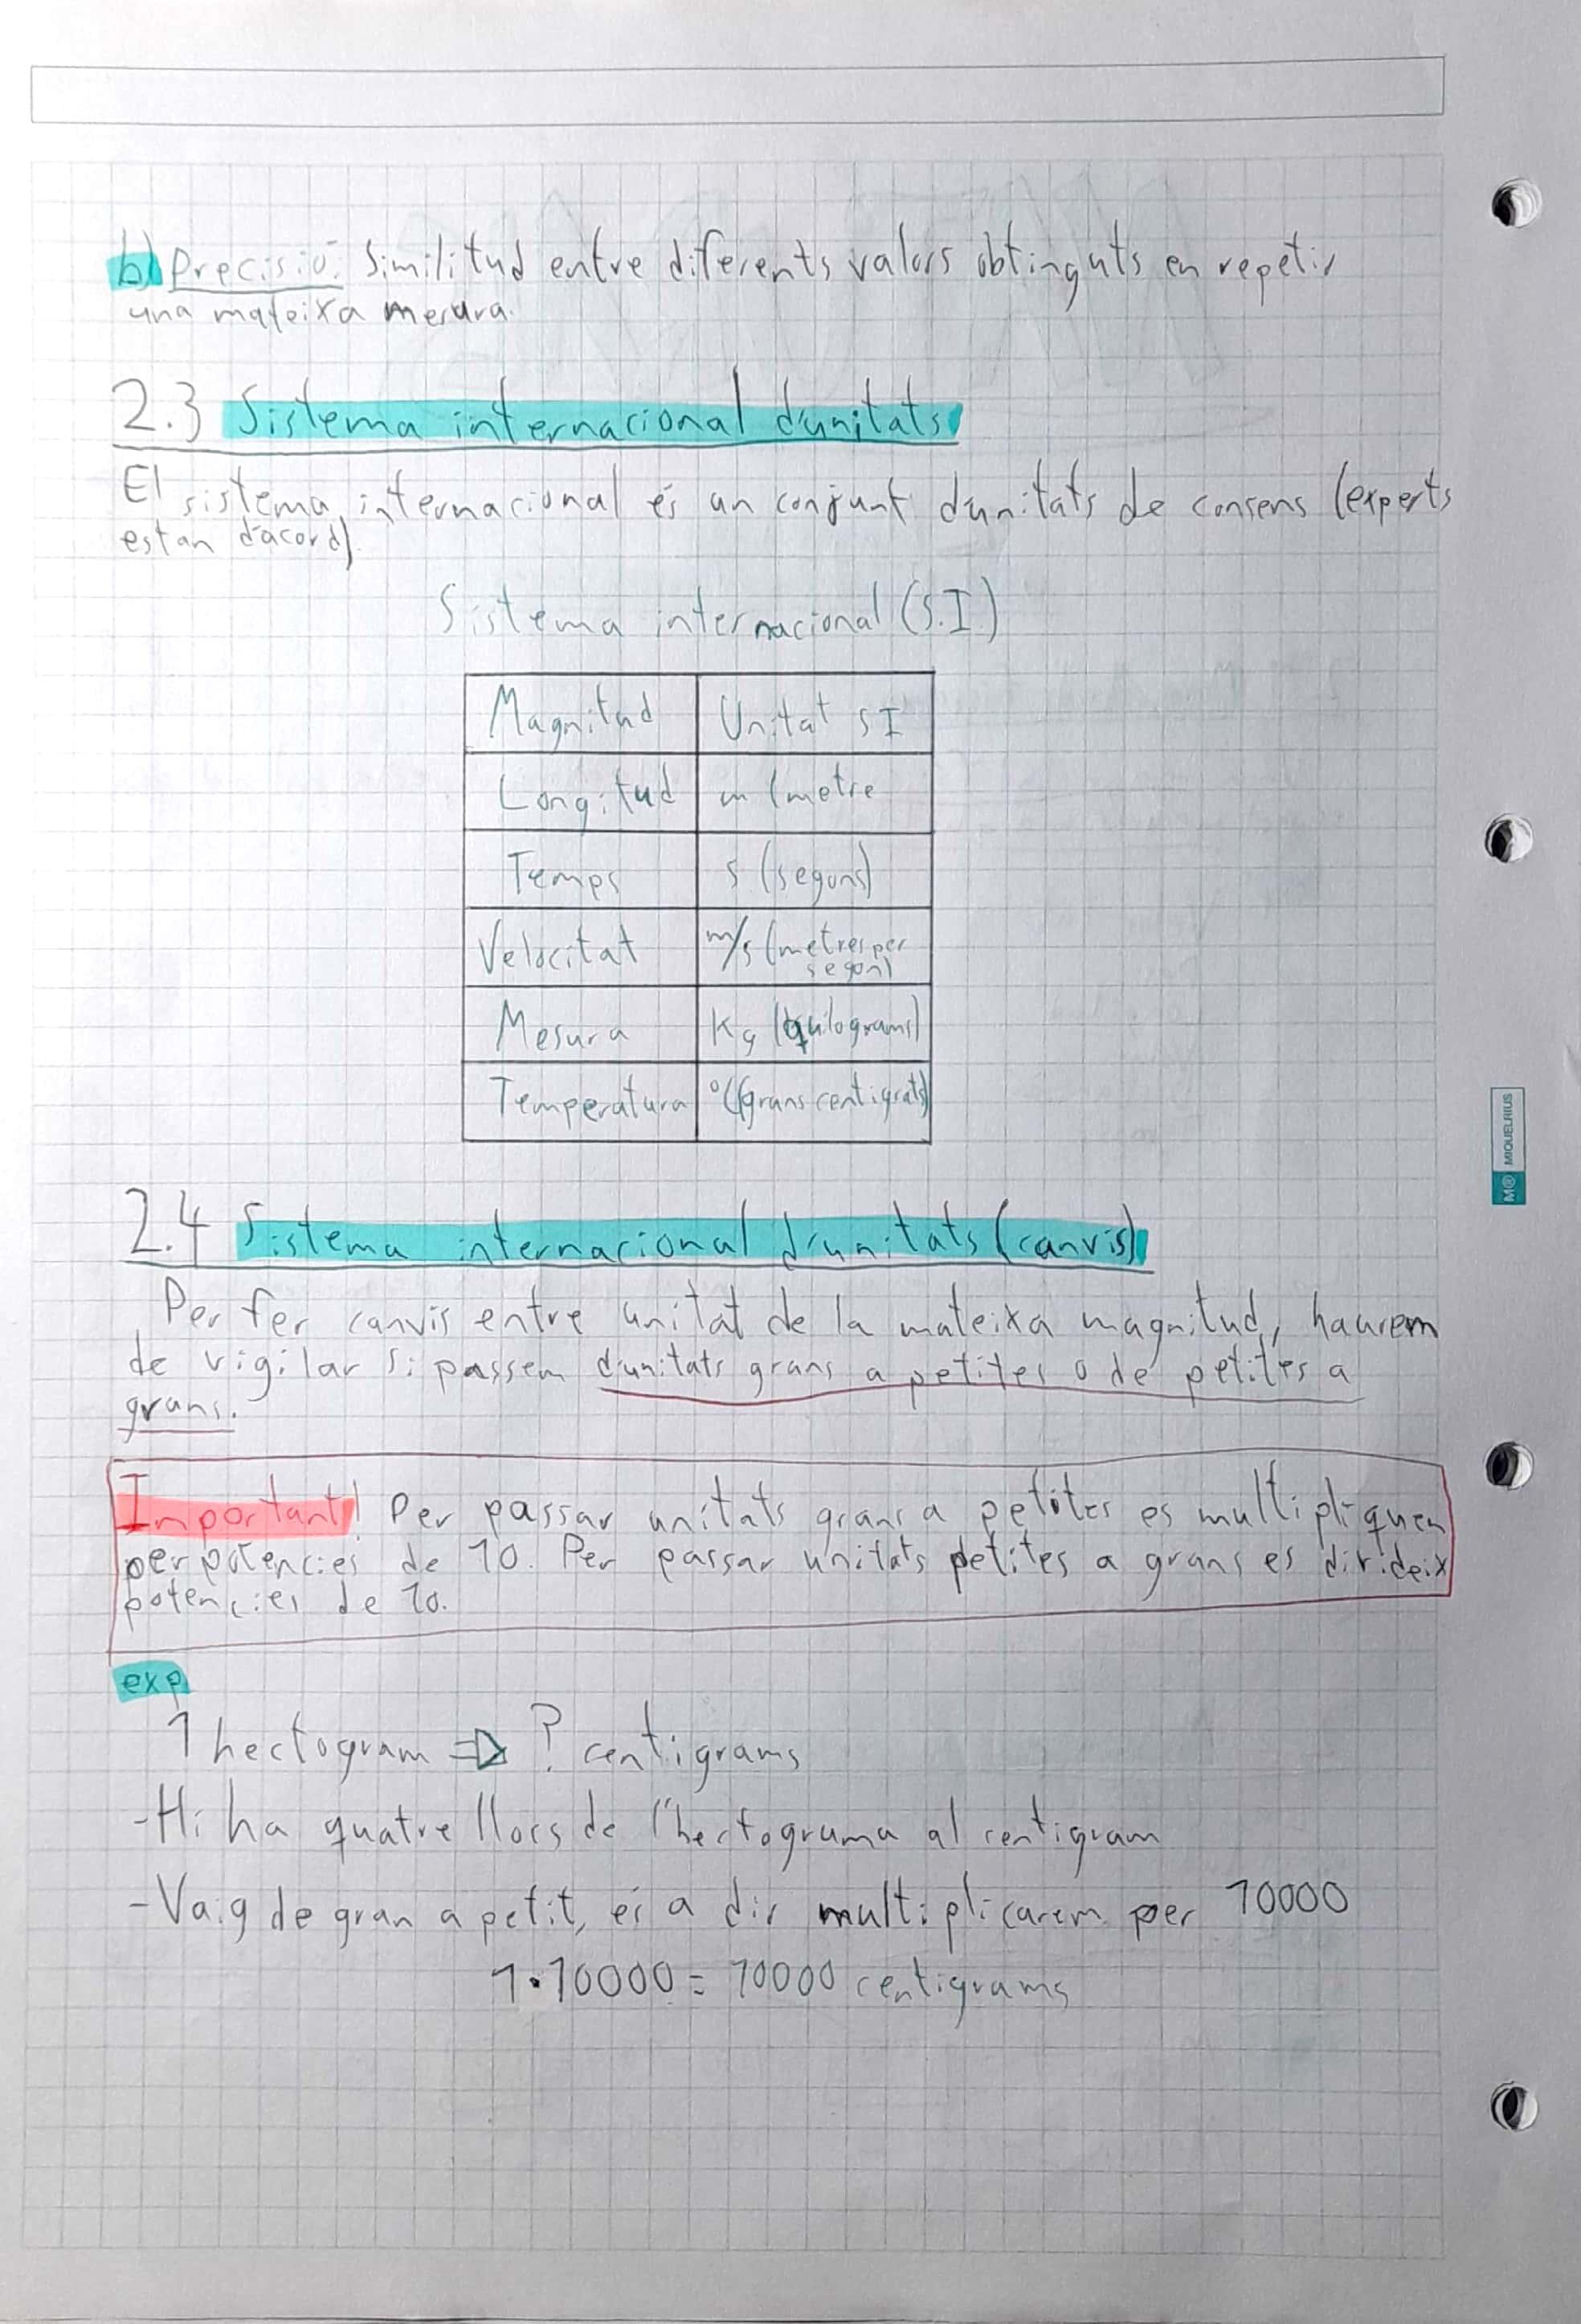 b) Precisió: Similitud entre diferents valors obtinguts en repetir
una mateixa mesura.
2.3 Sistema internacional d'unitats
El sistema internacional és un conjunt d'unitats de consens (experts
estan d'acord).
Sistema internacional (S.I.)
Magnitud Unitat SI
Longitud m (metre
Temps s (segons)
Velocitat m/s (metres per
segon)
Mesura Kg (quilograms)
Temperatura °C (graus centigrats)
2.4 Sistema internacional d'unitats (canvis)
Per fer canvis entre unitat de la mateixa magnitud, haurem
de vigilar si passem d'unitats grans a petites o de petites a
grans.
Important! Per passar unitats grans a petites es multipliquen
per potencies de 10. Per passar unitats petites a grans es divideix
potencies de 10.
exp
1 hectogram => ? centigrams
-Hi ha quatre llocs de l'hectograma al centigram
-Vaig de gran a petit, és a dir multiplicarem per 10000
1·10000 = 10000 centigrams
M® MIQUELRIUS